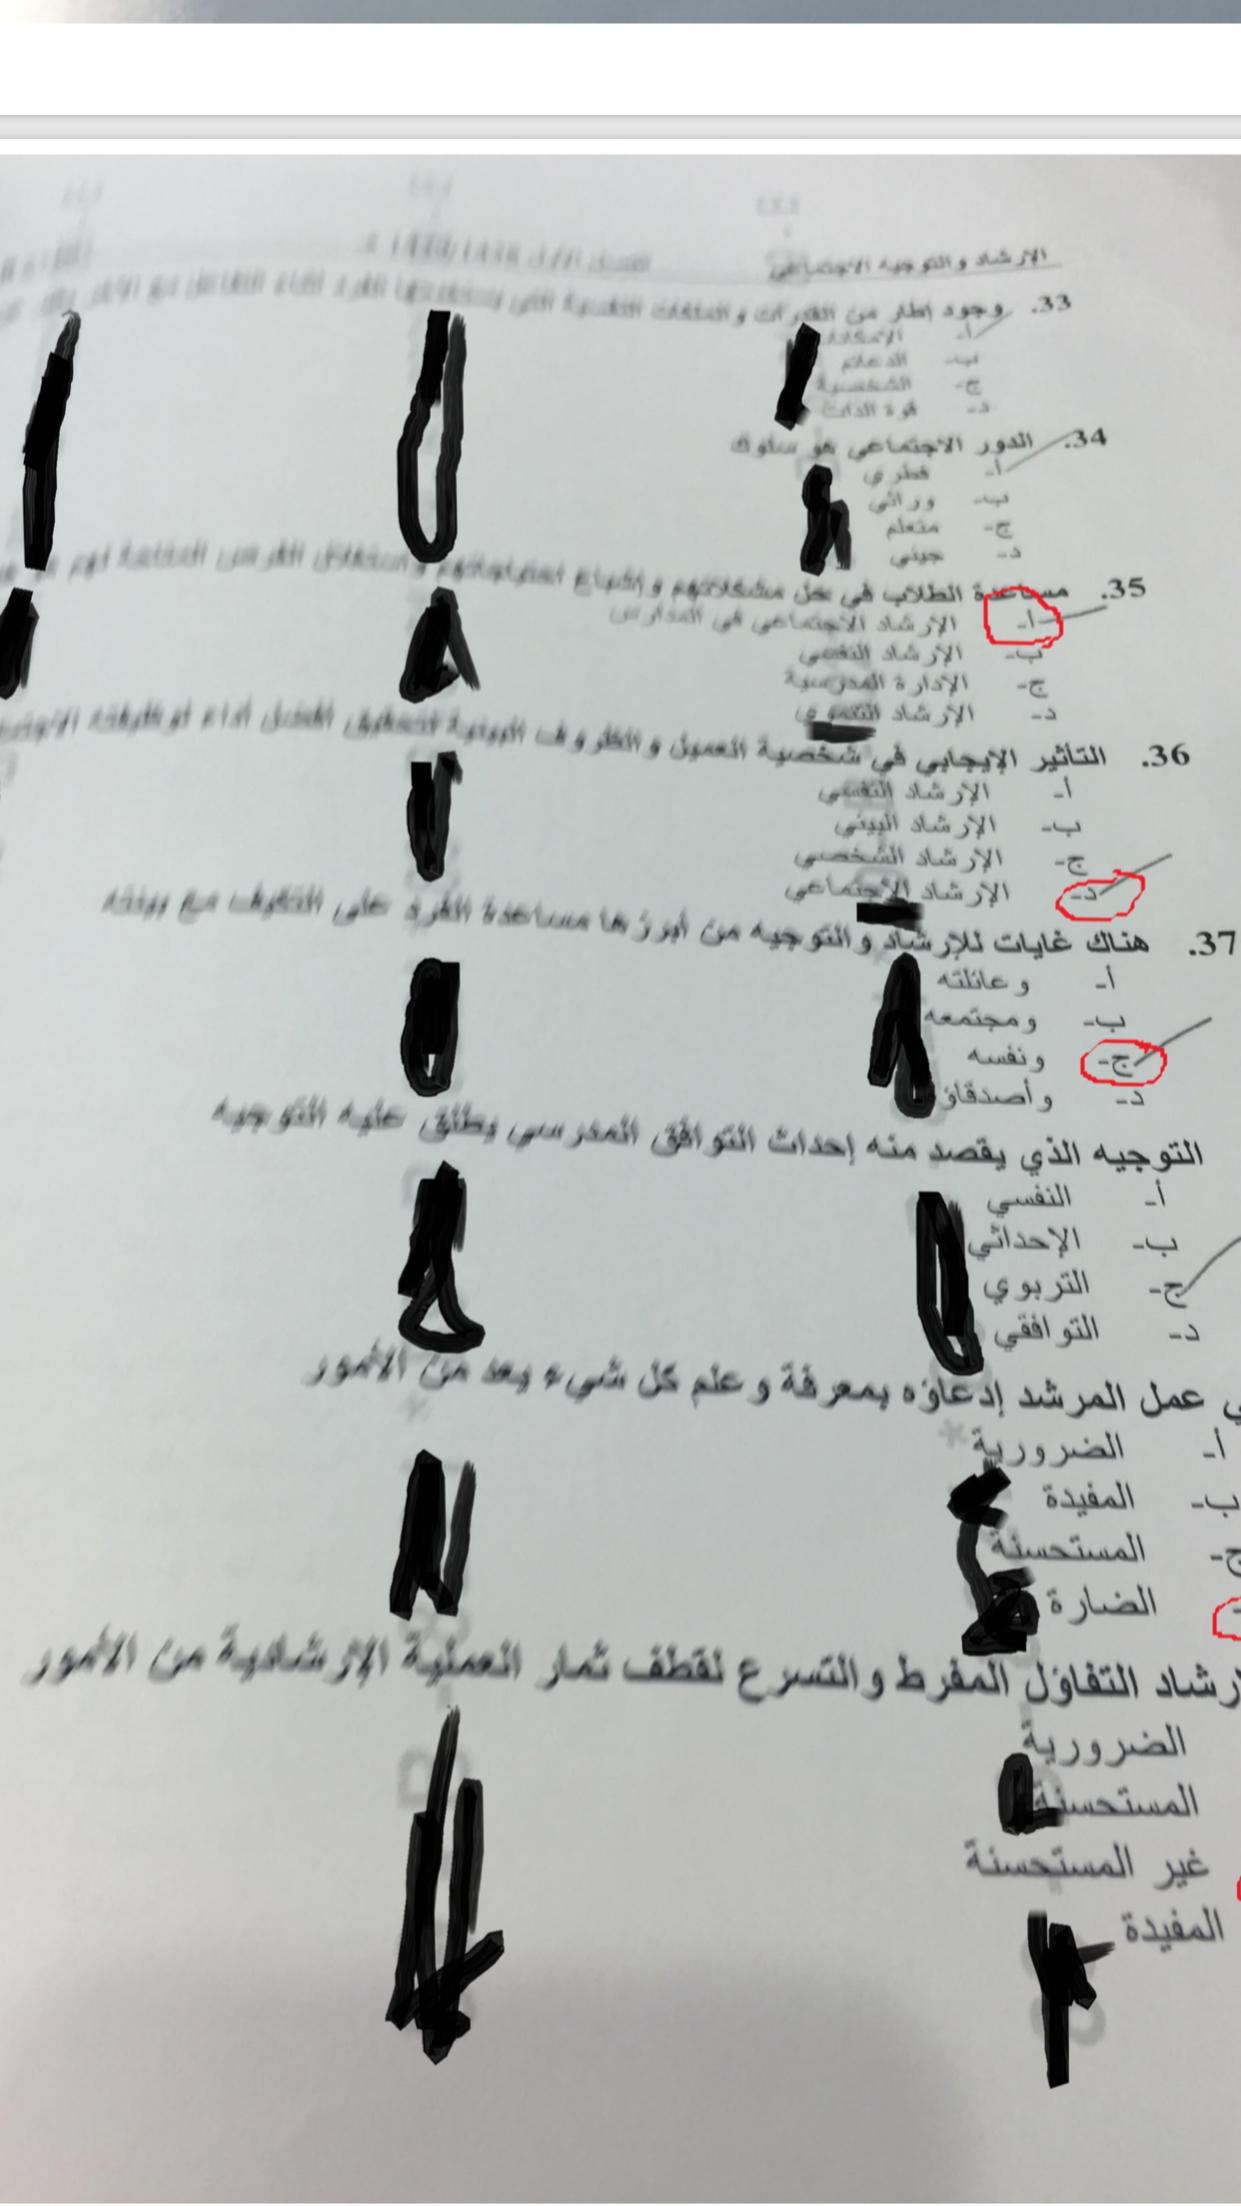 الإرشاد والتوجيه الاجتماعي
الفصل الأول
33. وجود إطار من القدرات و
أ-
ب- الدعائم
ج- الشخصية
د- قوة الذات
34. الدور الاجتماعي هو سلوك
أ- فطري
ب- وراثي
ج- متعلم
د- جيني
35. مساعدة الطلاب في حل مشكلاتهم وإشباع احتياجاتهم واستغلال الفرص المتاحة لهم
أ- الإرشاد الاجتماعي في المدارس
ب- الإرشاد النفسي
ج- الإدارة المدرسية
د- الإرشاد التنموي
36. التأثير الإيجابي في شخصية العميل والظروف البيئية لتحقيق أفضل أداء لوظيفته
أ- الإرشاد النفسي
ب- الإرشاد البيئي
ج- الإرشاد الشخصي
د- الإرشاد الاجتماعي
37. هناك غايات للإرشاد والتوجيه من أبرزها مساعدة الفرد على التكيف مع بيئته
أ- وعائلته
ب- ومجتمعه
ج- ونفسه
د- وأصدقاؤ
التوجيه الذي يقصد منه إحداث التوافق المدرسي يطلق عليه التوجيه
أ- النفسي
ب- الإحداثي
ج- التربوي
د- التوافقي
ي عمل المرشد إدعاؤه بمعرفة وعلم كل شيء يعد من الأمور
أ- الضرورية
ب- المفيدة
ج- المستحسنة
الضارة
رشاد التفاؤل المفرط والتسرع لقطف ثمار العملية الإرشادية من الأمور
الضرورية
المستحسنة
غير المستحسنة
المفيدة